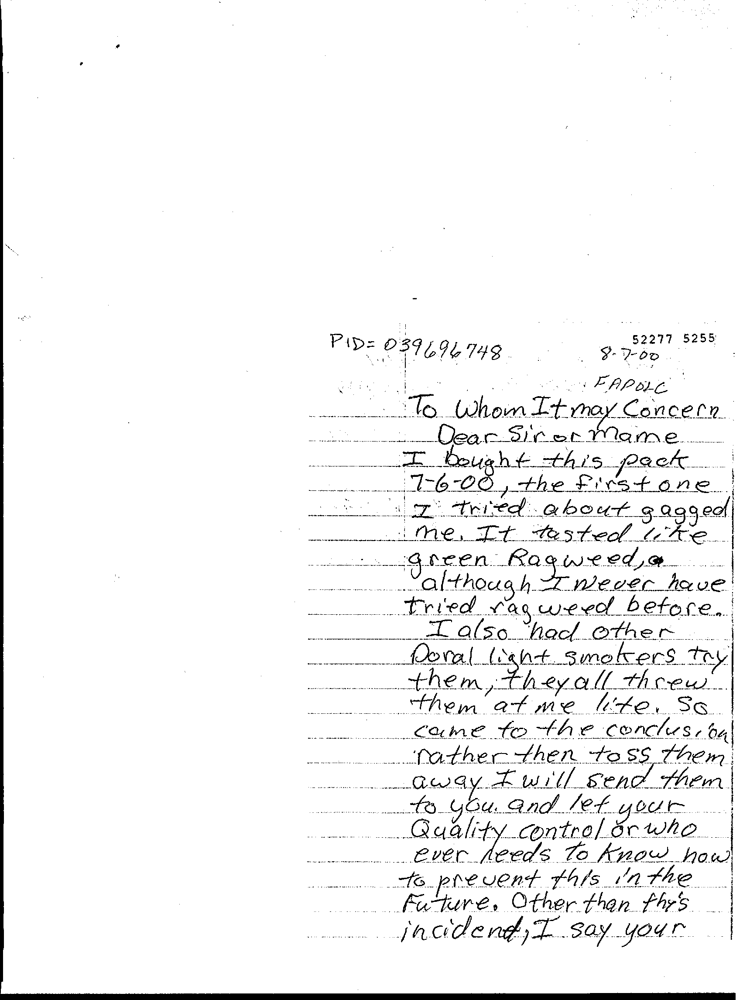 52277 5255
PID= 039696748
8-7-00
FAPDLC
To Whom It may Concern
Dear Sir or Mame
I bought this pack
7-6-00, the first one
I tried about gagged
me. It tasted like
green Ragweed,
although I Never have
tried ragweed before.
I also had other
Doral light smokers try
them, they all threw
them at me lite. So
came to the conclusion
rather then toss them
away I will send them
to you. and let your
Quality control or who
ever needs to Know how
to prevent this in the
Future. Other than this
incident, I say your